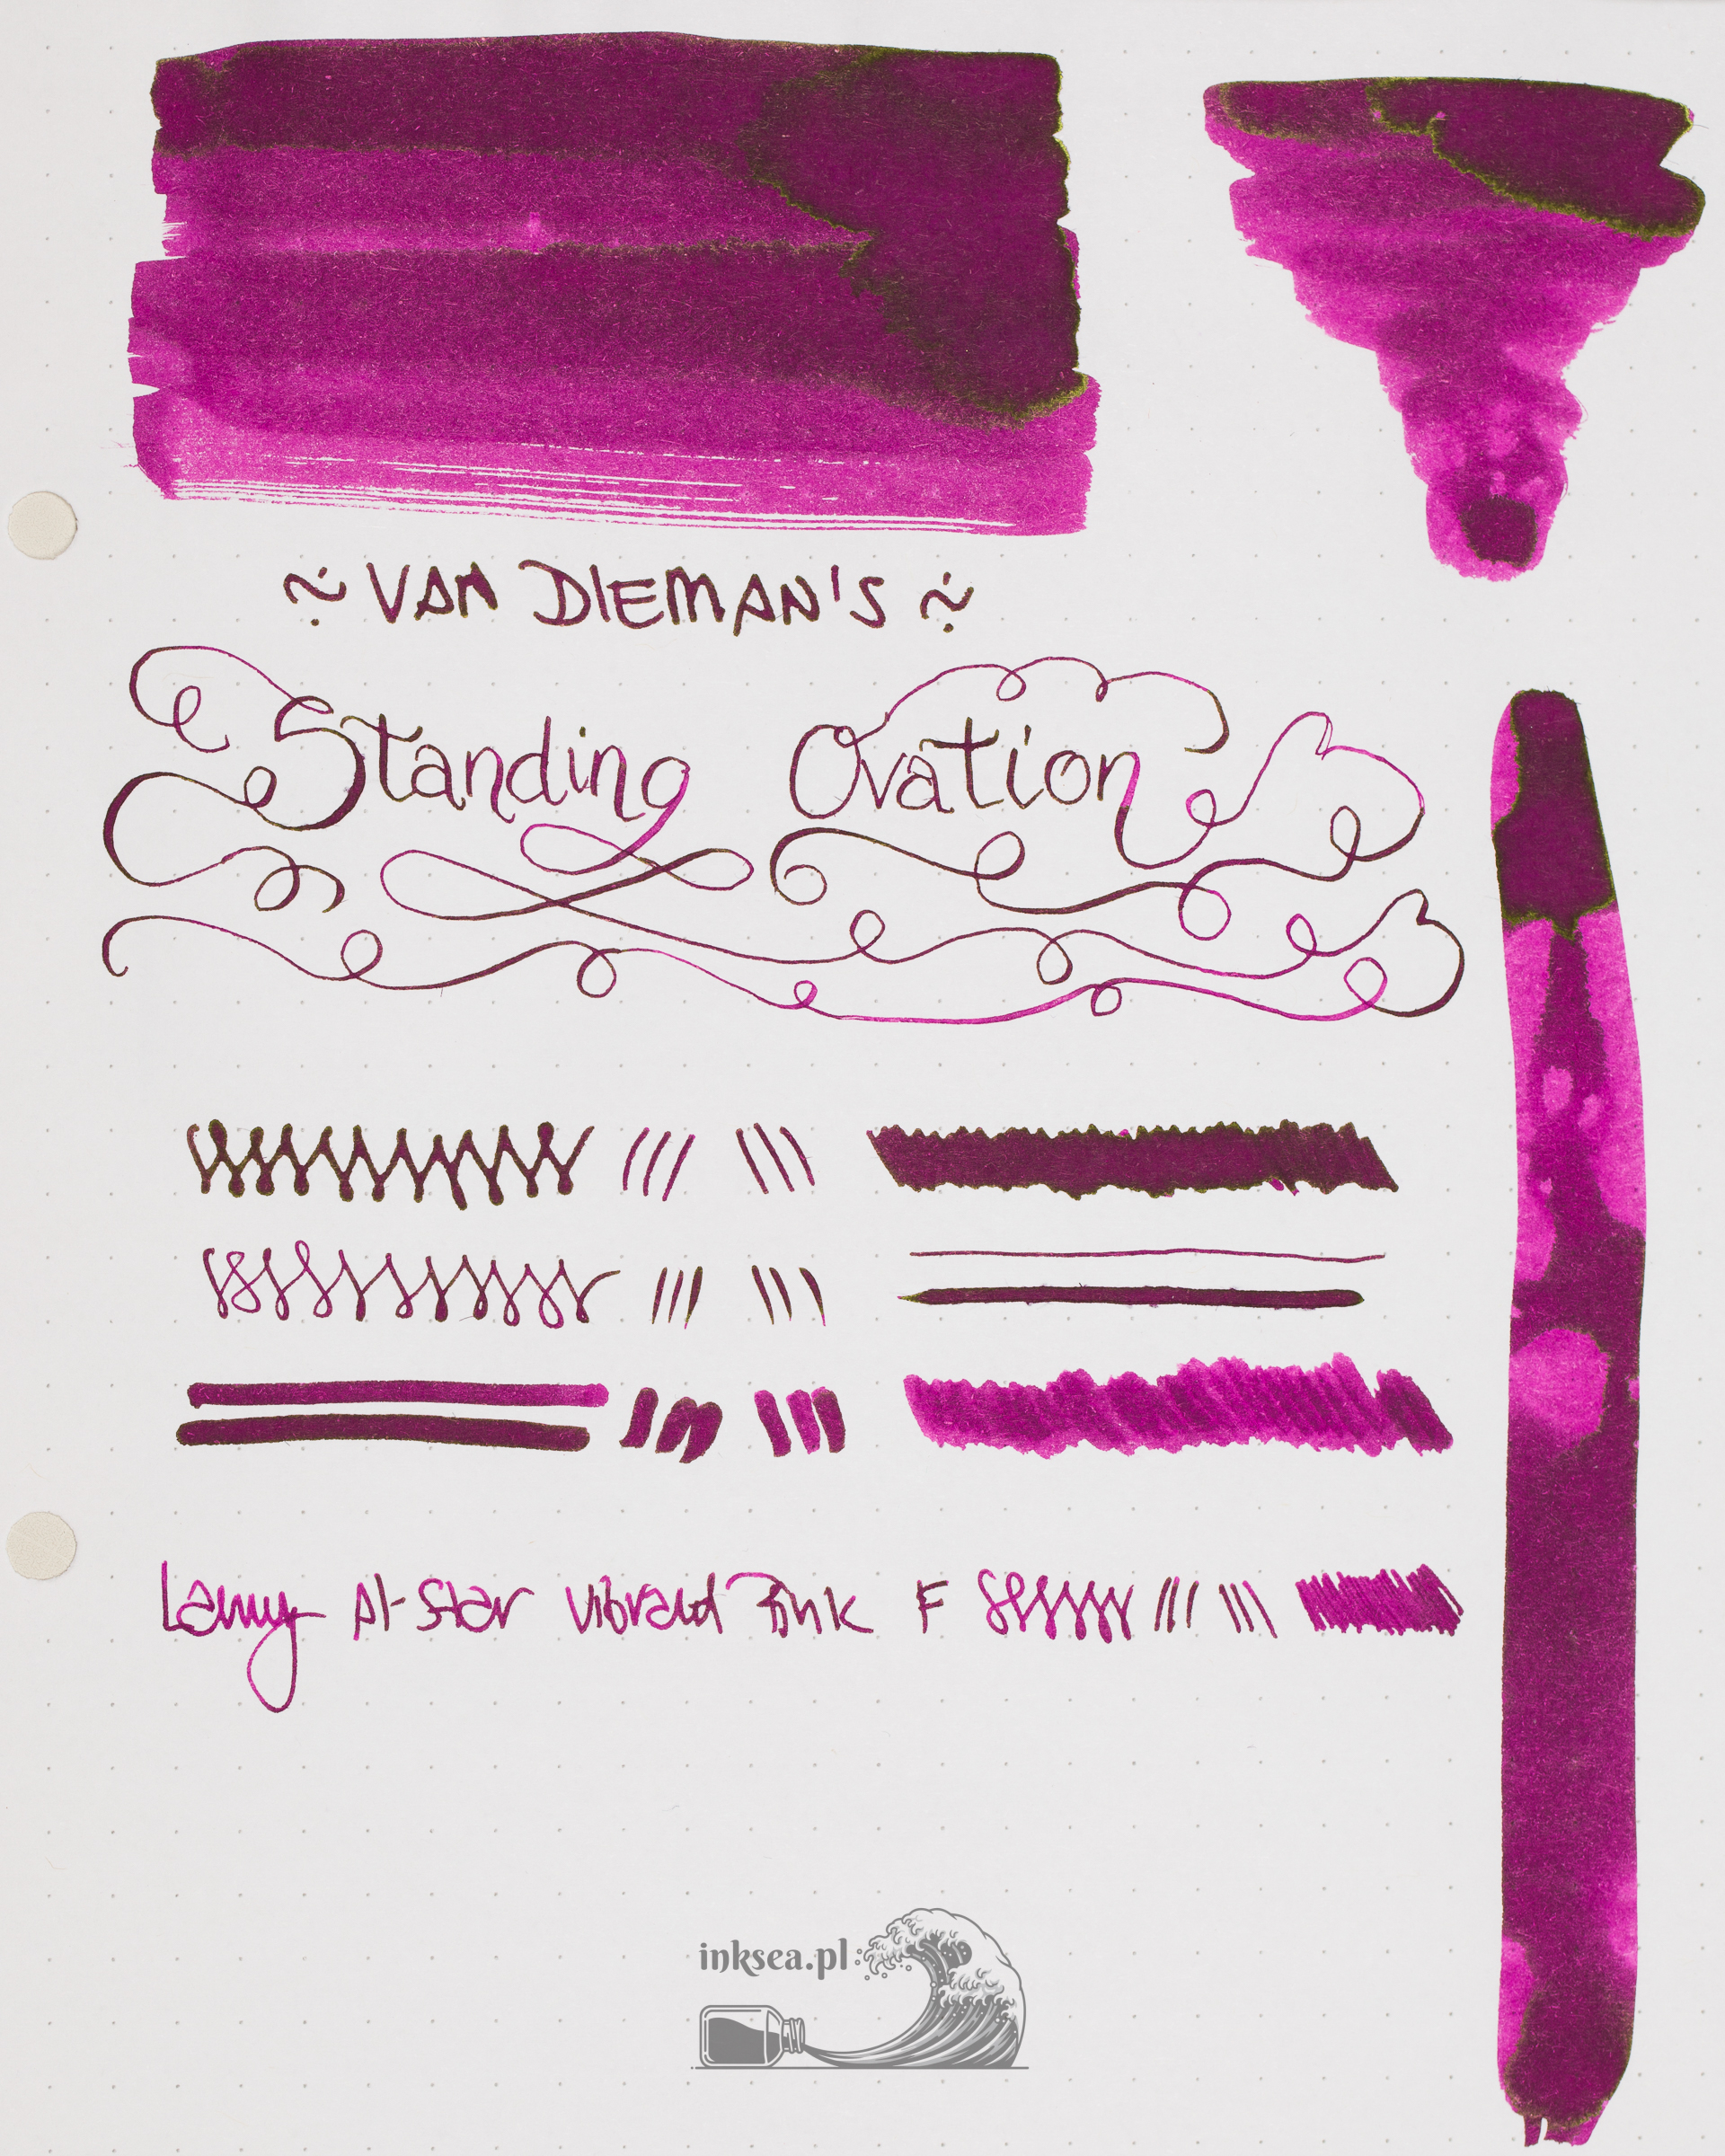 ~ VAN DIEMAN'S ~
Standing Ovation
Lamy Al-Star Vibrant Pink F
inksea.pl